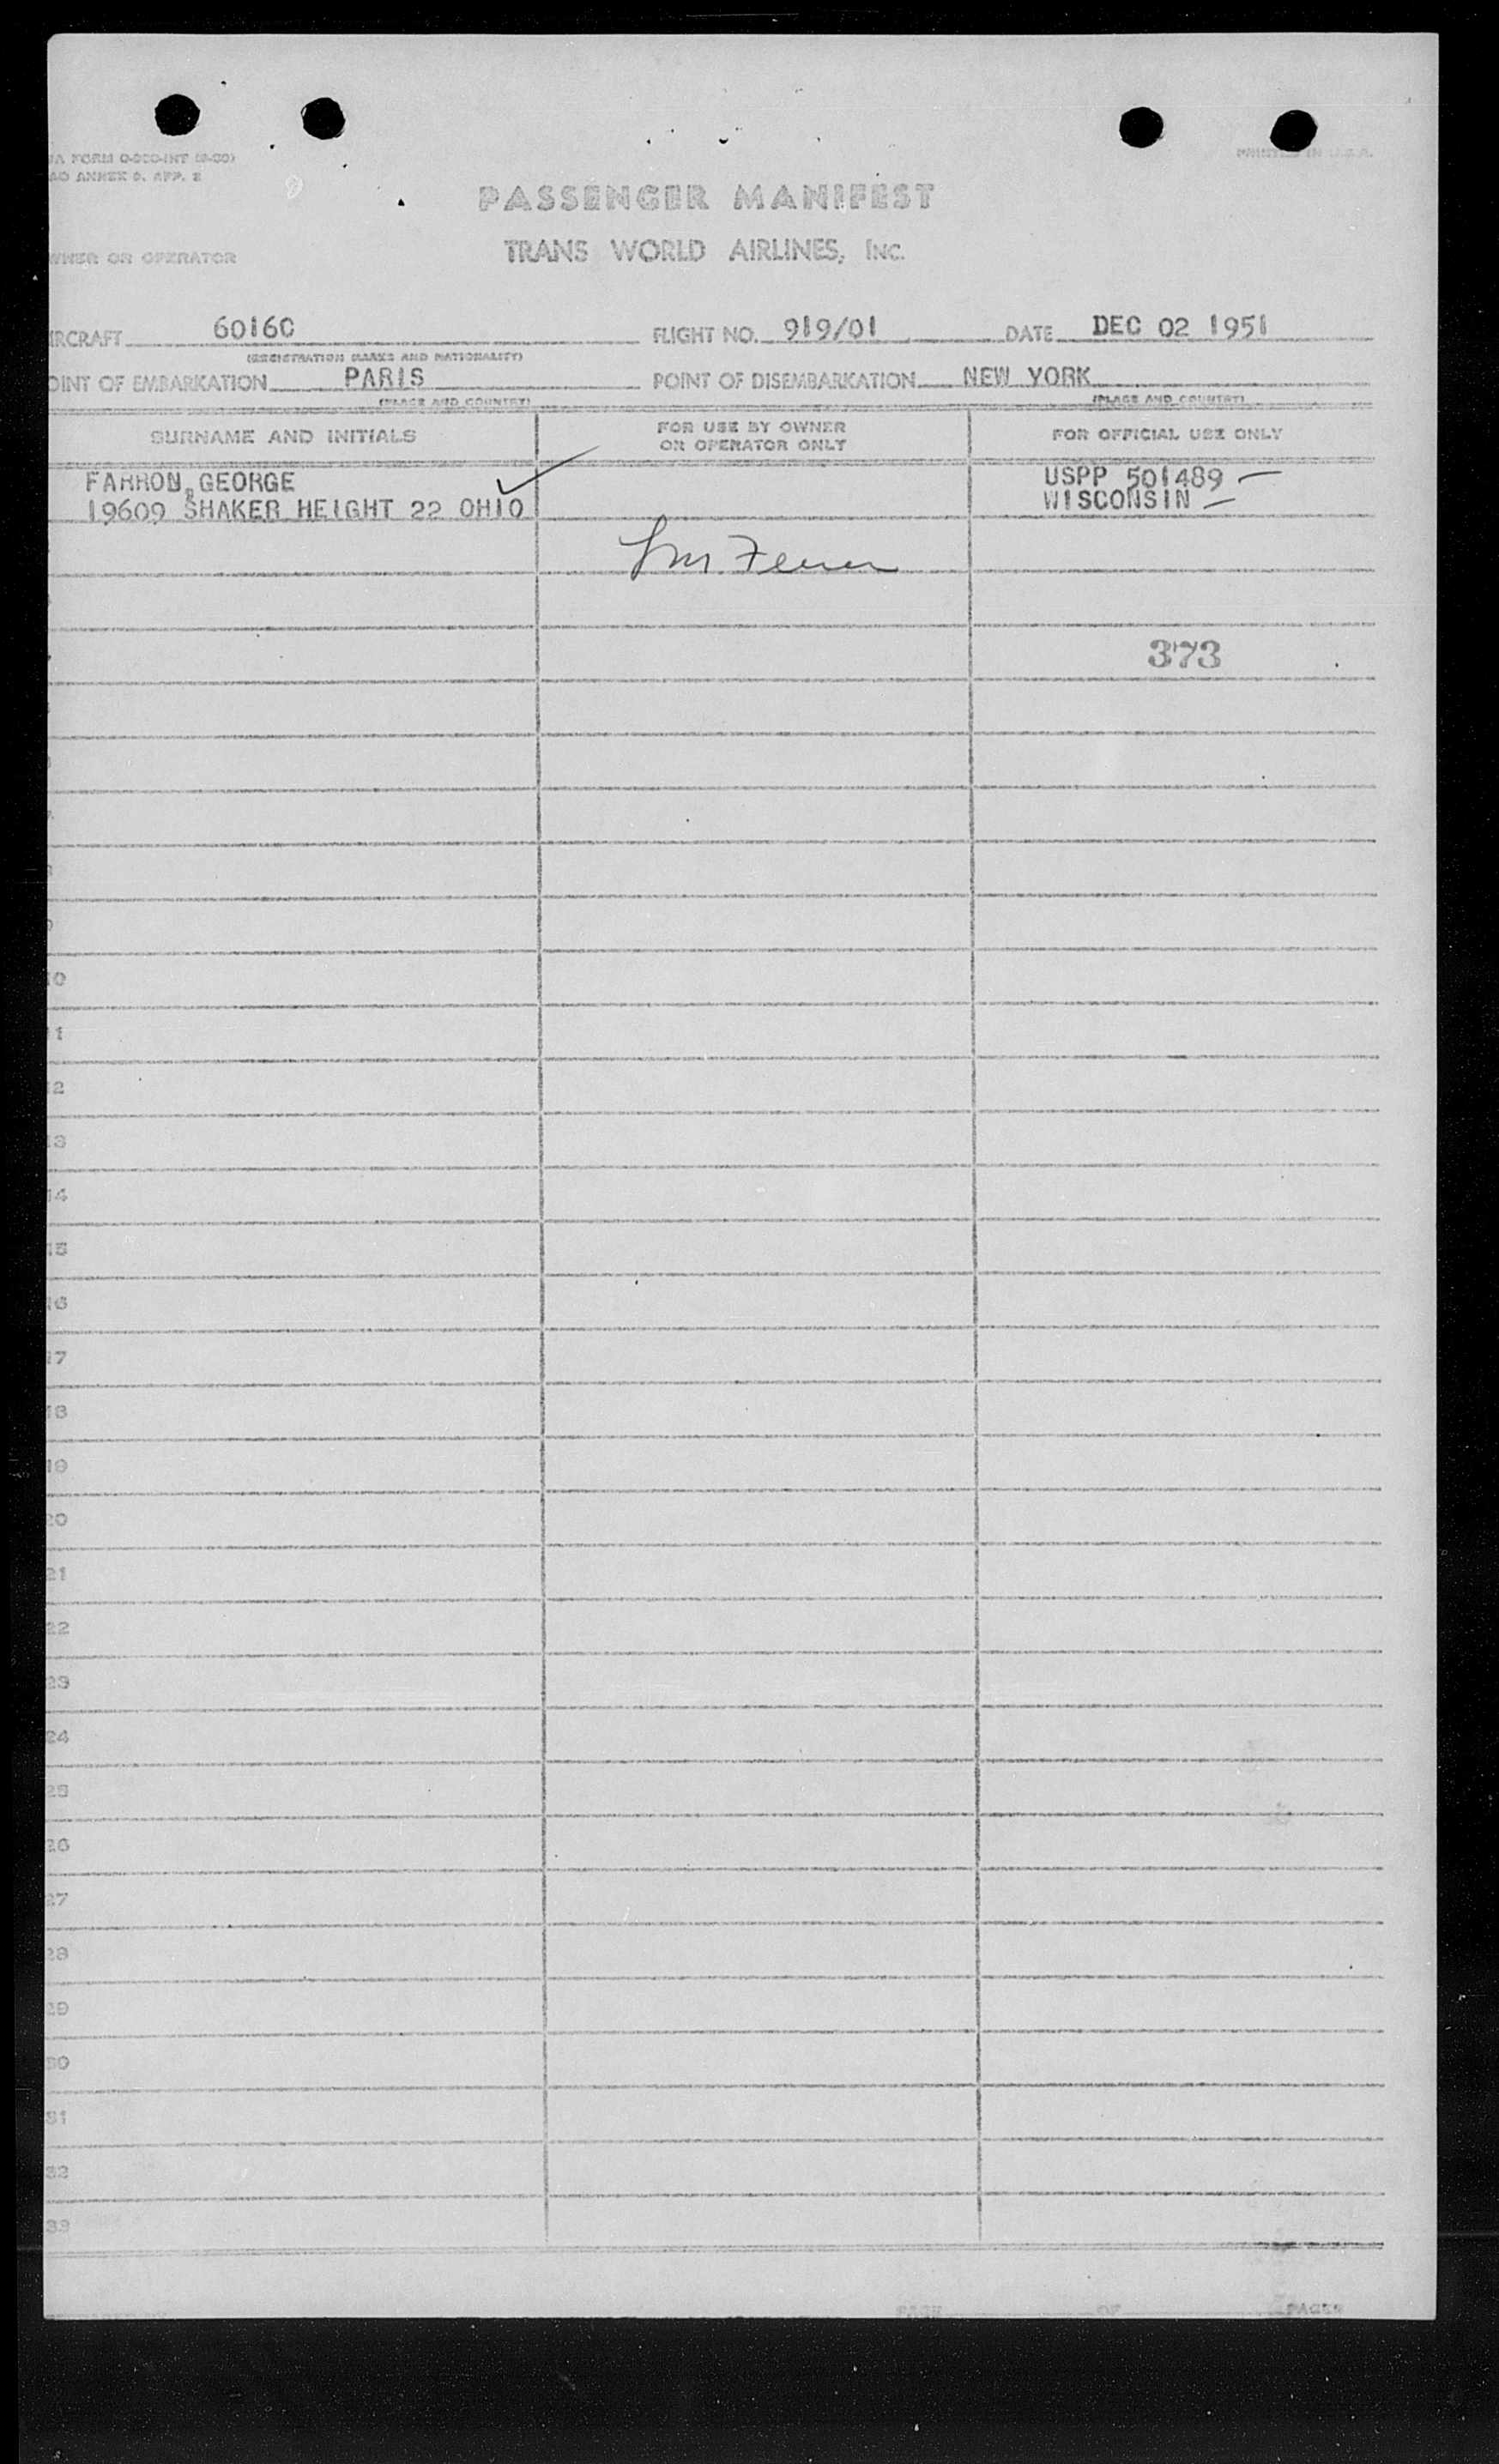 A FORM O-000-INT
AO ANNEX 9, APP. 2
PRINTED IN U.S.A.
PASSENGER MANIFEST
TRANS WORLD AIRLINES, INC.
WNER OR OPERATOR
IRCRAFT 6016C FLIGHT NO. 919/01 DATE DEC 02 1951
(REGISTRATION MARKS AND NATIONALITY)
OINT OF EMBARKATION PARIS POINT OF DISEMBARKATION NEW YORK
(PLACE AND COUNTRY) (PLACE AND COUNTRY)
SURNAME AND INITIALS FOR USE BY OWNER OR OPERATOR ONLY FOR OFFICIAL USE ONLY
FARRON, GEORGE USPP 501489 –
19609 SHAKER HEIGHT 22 OHIO WISCONSIN –
373
10
11
12
13
14
15
16
17
18
19
20
21
22
23
24
25
26
27
28
29
30
31
32
33
PAGE OF PAGES